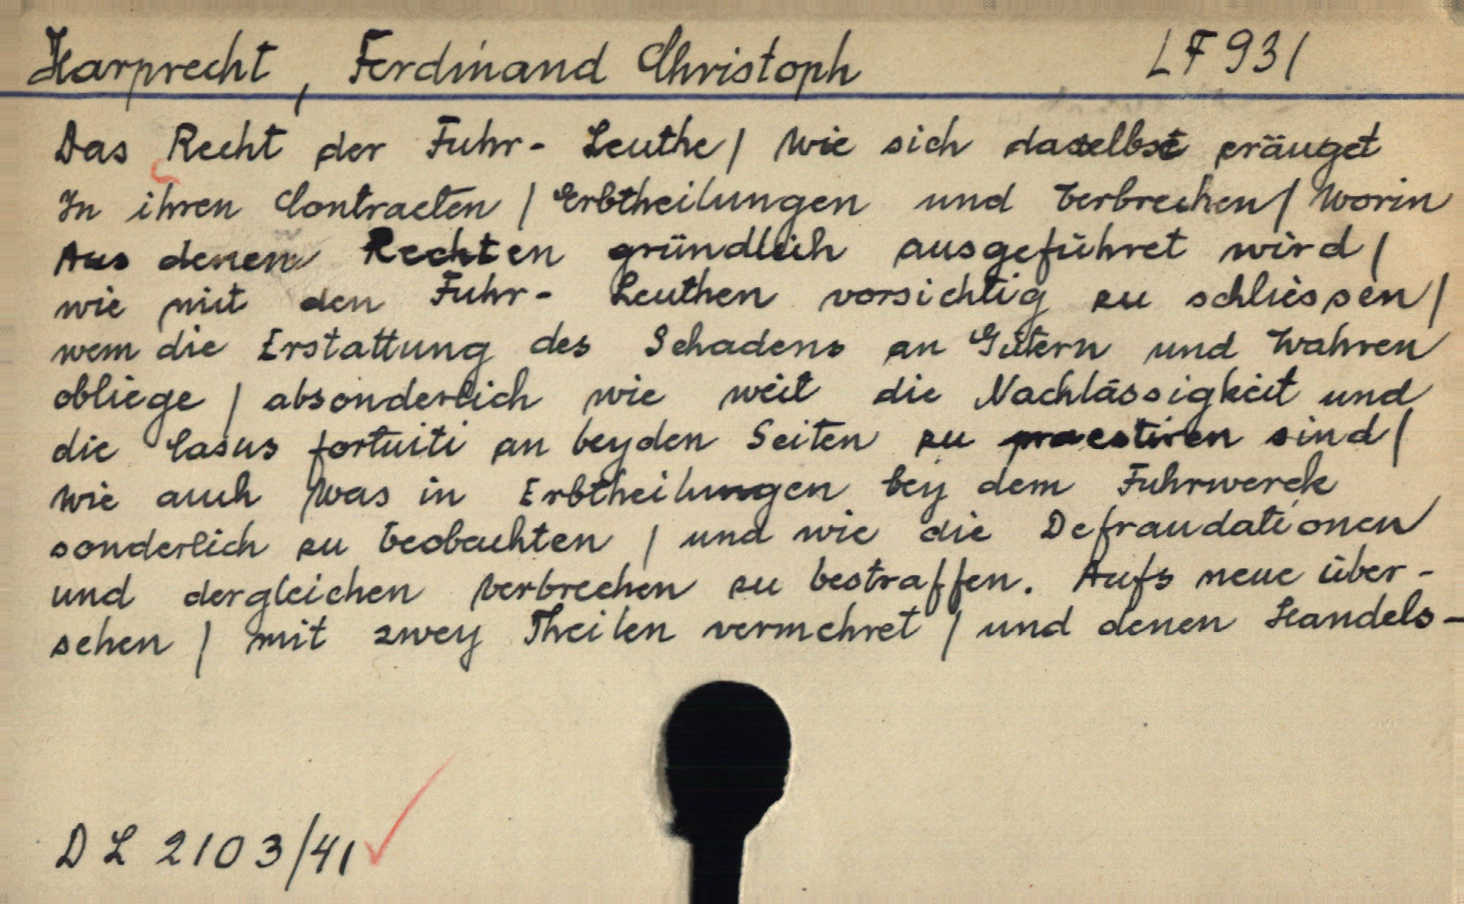 Harprecht, Ferdinand Christoph LF 931
Das Recht der Fuhr- Leuthe / Wie sich daselbst eräuget
In ihren Contracten / Erbtheilungen und Verbrechen / Worin
Aus denen Rechten gründlich ausgeführet wird /
wie mit den Fuhr- Leuthen vorsichtig zu schliessen /
wem die Erstattung des Schadens an Gütern und Wahren
obliege / absonderlich wie weit die Nachlässigkeit und
die Casus fortuiti an beyden Seiten zu praestiren sind /
Wie auch Was in Erbtheilungen bey dem Fuhrwerck
sonderlich zu beobachten / und wie die Defraudationen
und dergleichen Verbrechen zu bestraffen. Aufs neue über-
sehen / mit zwey Theilen vermehret / und denen Handels-
DL 2103/41